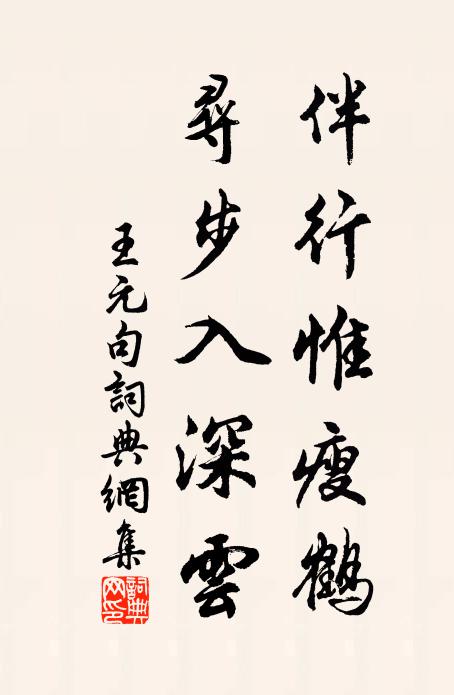 伴行惟瘦鶴
尋步入深雲
王元句詞典網集
詞典網印